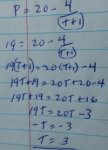 P = 20 - 4/(T+1)
19 = 20 - 4/(T+1)
19(T+1) = 20(T+1) - 4
19T+19 = 20T+20-4
19T+19 = 20T+16
19T = 20T-3
-T = -3
T = 3